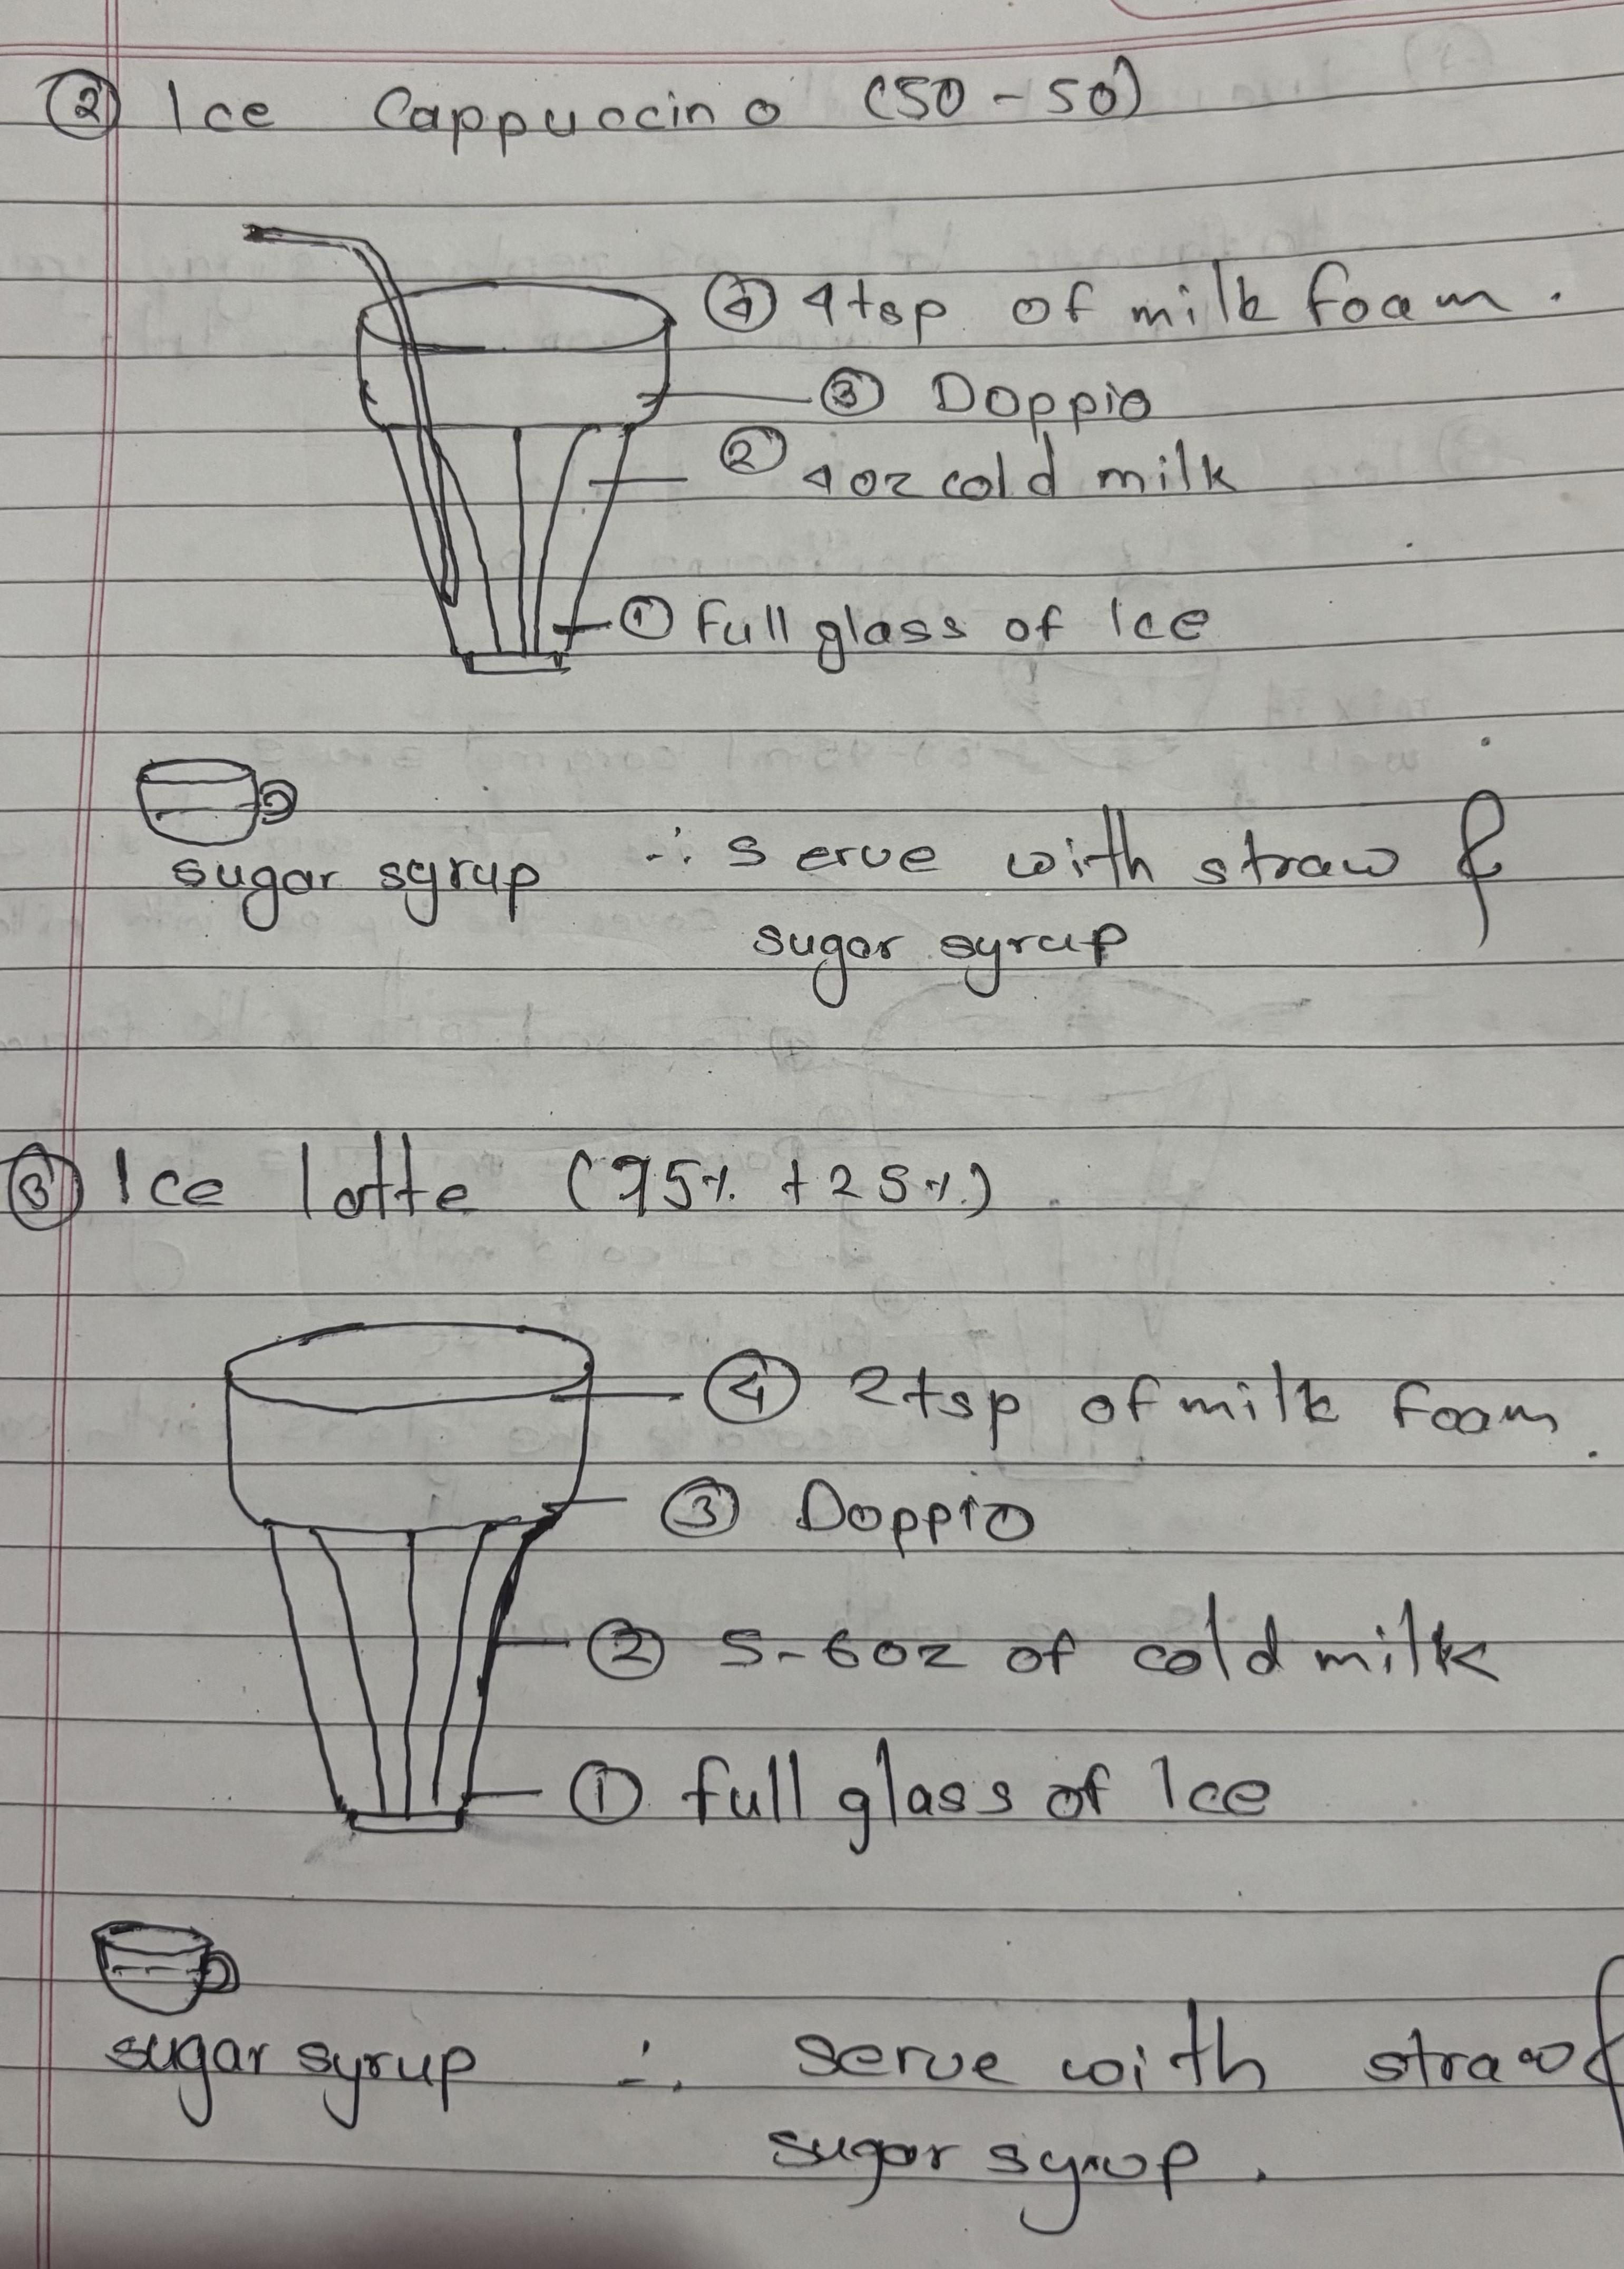 ② Ice Cappuccino (50-50)
④ 4tsp of milk foam.
③ Doppio
② 4oz cold milk
① full glass of Ice
sugar syrup ∴ serve with straw &
sugar syrup
③ Ice latte (75% + 25%)
④ 2tsp of milk foam.
③ Doppio
② 5-6oz of cold milk
① full glass of Ice
sugar syrup ∴ serve with straw &
sugar syrup.